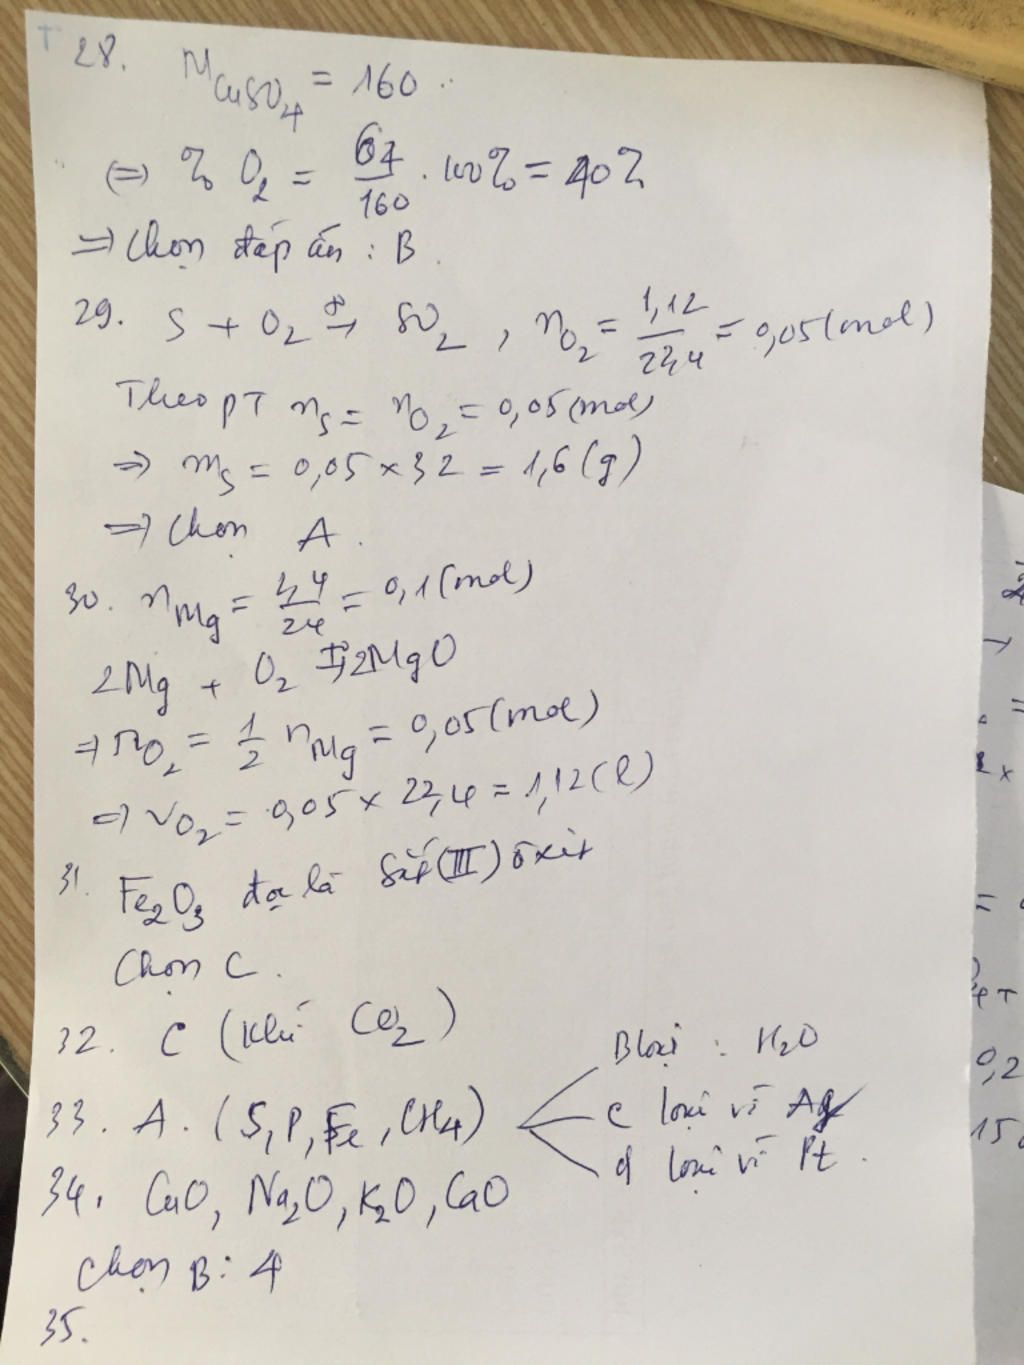 28. M CuSO4 = 160
(=) % O2 = 64/160 . 100% = 40%
=> Chọn đáp án : B.
29. S + O2 t°→ SO2 , nO2 = 1,12/22,4 = 0,05 (mol)
Theo PT nS = nO2 = 0,05 (mol)
=> mS = 0,05 × 32 = 1,6 (g)
=> Chọn A.
30. nMg = 2,4/24 = 0,1 (mol)
2Mg + O2 t°→ 2MgO
=> nO2 = 1/2 nMg = 0,05 (mol)
=> VO2 = 0,05 × 22,4 = 1,12 (l)
31. Fe2O3 đọc là Sắt (III) ôxit
Chọn C.
32. C (Khí CO2)
33. A. (S, P, Fe, CH4)
B loại : H2O
C loại vì Ag
d loại vì Pt.
34. CuO, Na2O, K2O, CaO
Chọn B: 4
35.